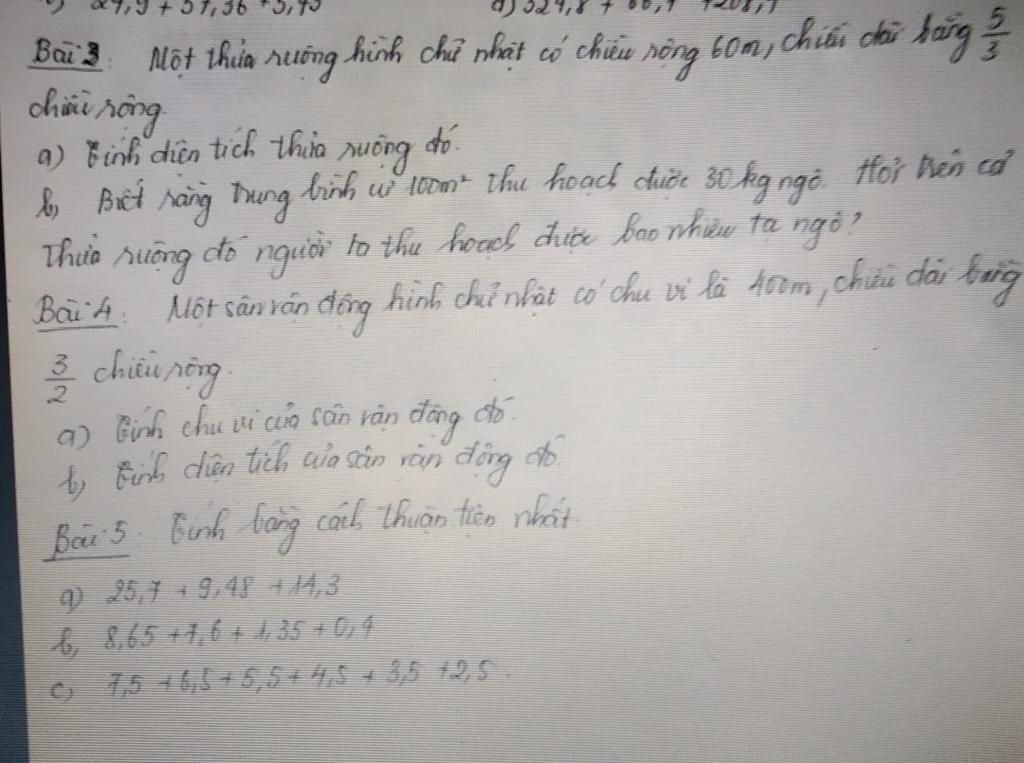 24,9 + 57,36 + 5,45 d) 324,8 + 66,7 + 208,4
Bài 3: Một thửa ruộng hình chữ nhật có chiều rộng 60m, chiều dài bằng 5/3
chiều rộng.
a) Tính diện tích thửa ruộng đó.
b, Biết rằng trung bình cứ 100m² thu hoạch được 30 kg ngô. Hỏi trên cả
thửa ruộng đó người ta thu hoạch được bao nhiêu tạ ngô?
Bài 4: Một sân vận động hình chữ nhật có chu vi là 400m, chiều dài bằng
3/2 chiều rộng.
a) Tính chu vi của sân vận động đó.
b, Tính diện tích của sân vận động đó.
Bài 5: Tính bằng cách thuận tiện nhất.
a) 25,7 + 9,48 + 14,3
b, 8,65 + 7,6 + 1,35 + 0,4
c) 7,5 + 6,5 + 5,5 + 4,5 + 3,5 + 2,5.